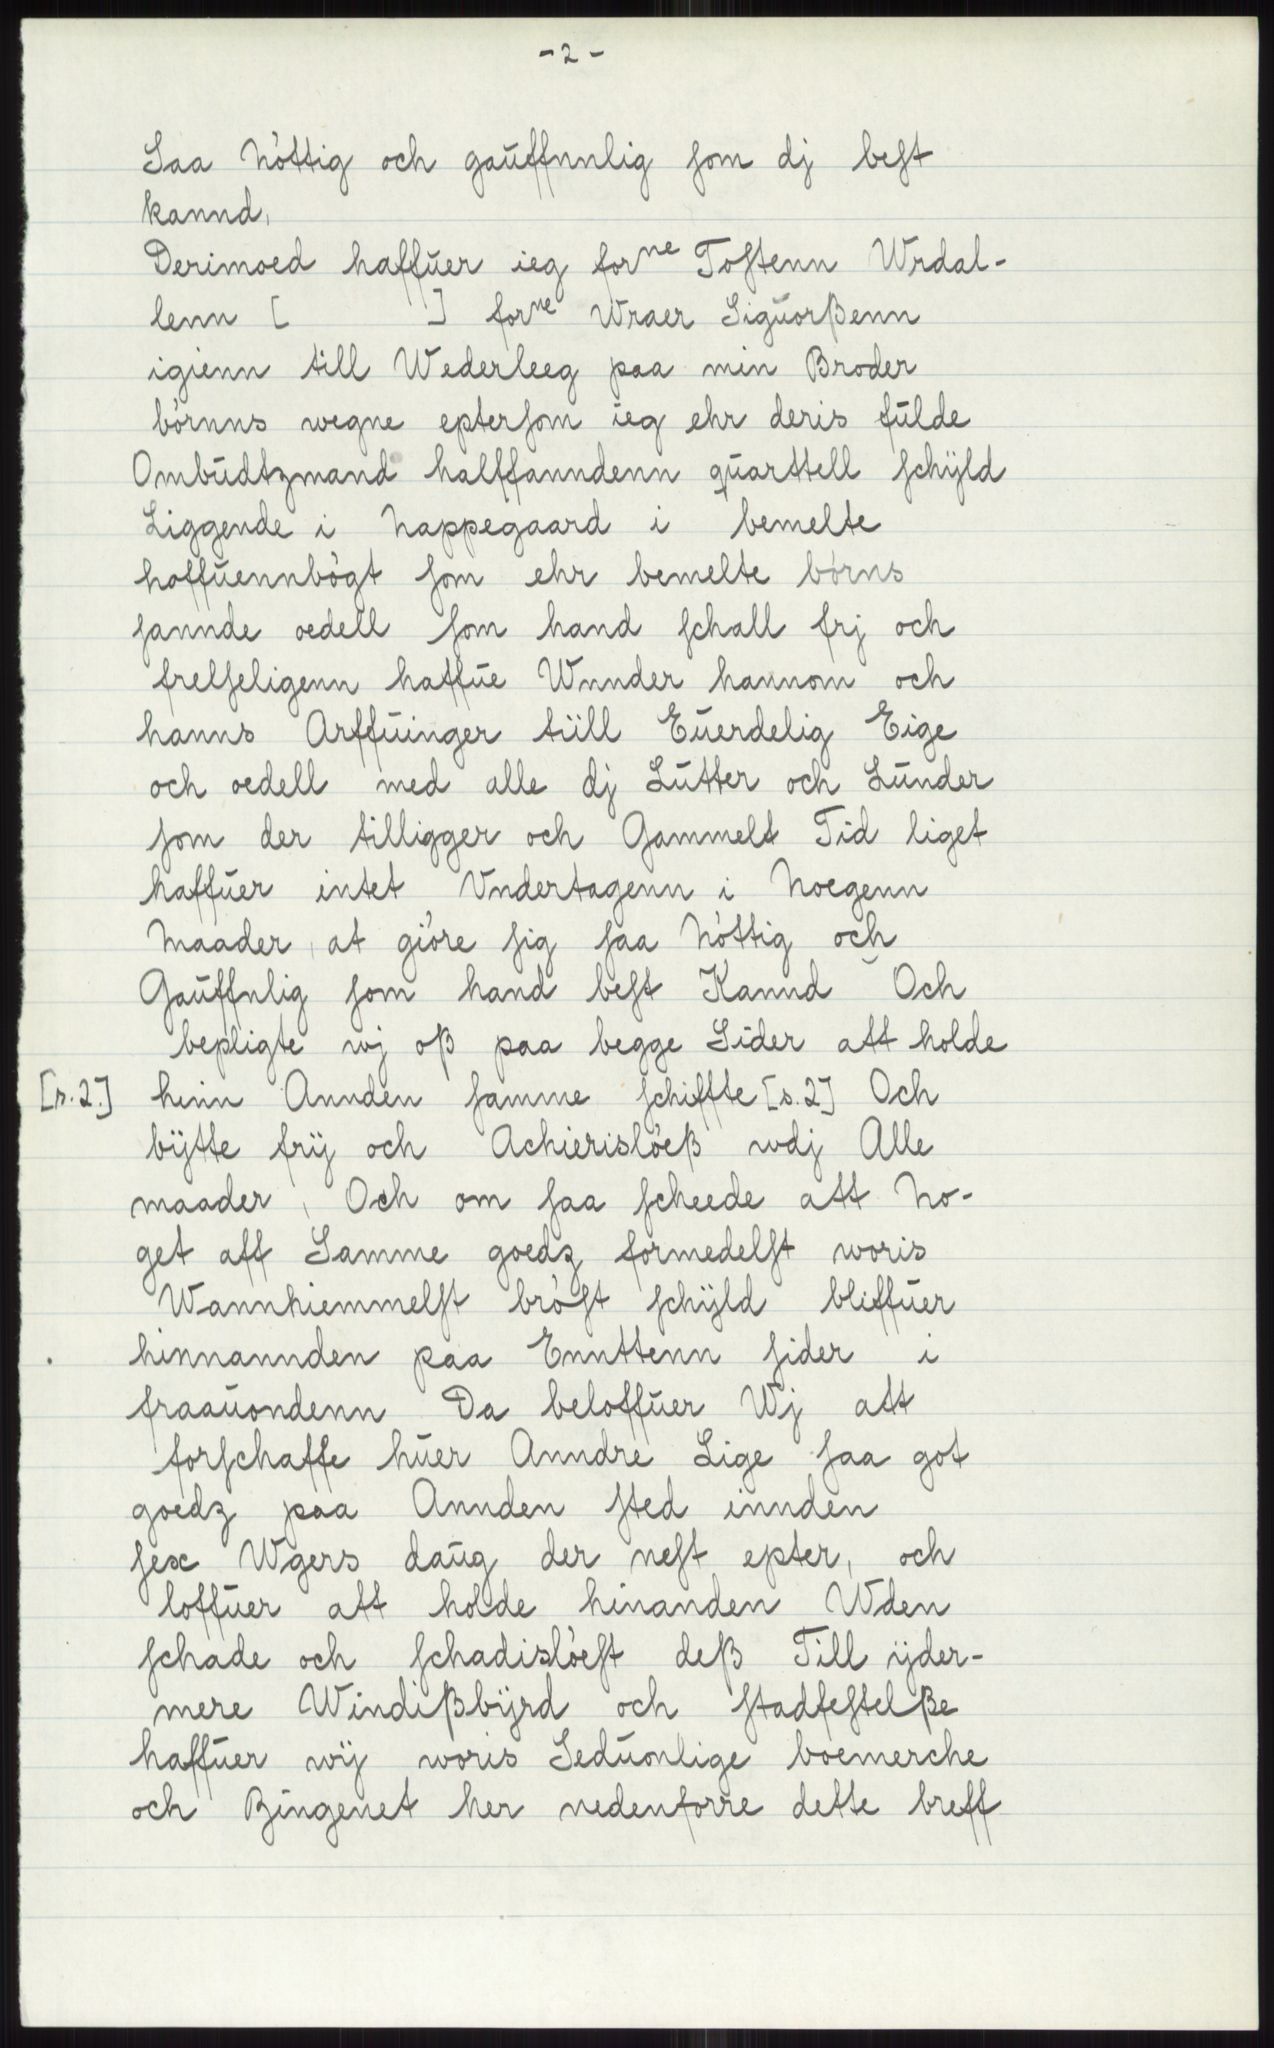 - 2 -
Saa Nòttig och gaŭffnnlig som dj best
kannd,
Derimoed haffŭer ieg forne Tostenn Wrdal-
lenn [ ] forne Wraer Sigŭorßenn
igienn till Wederleeg paa min Broder
bòrnns wegne eptersom ieg ehr deris fŭlde
Ombŭdtzmand halffanndenn qŭarttell schÿld
Liggende i Nappegaard i bemelte
hoffŭennbògt som ehr bemelte bòrns
sannde oedell som hand schall frj och
frelseligenn haffŭe Wnnder hannom och
hanns Arffŭinger tiill Eŭerdelig Eige
och oedell med alle dj Lŭtter och Lŭnder
som der tilligger och Gammelt Tid liget
haffŭer intet Vndertagenn i Noegenn
Maader, at giòre sig saa Nòttig och
Gaŭffnlig som hand best Kannd Och
bepligte wj oß paa begge Sider att holde
[r. 2.] hinn Annden samme schiffte [s. 2] Och
bÿtte frÿ och Achierislòeß wdj Alle
maader, Och om saa scheede att No-
get aff Samme goedz formedelst woris
Wannhiemmelst bròst schÿld bliffŭer
hinnannden paa Ennttenn sider i
fraaŭondenn Da beloffŭer Wj att
forschaffe hŭer Anndre Lige saa got
goedz paa Annden sted innden
sex Wgers daŭg der nest epter, och
loffŭer att holde hinanden Wden
schade och schadislòest deß Till ÿder-
mere Windißbÿrd och stadfestelße
haffŭer wÿ woris Sedŭonlige boemerche
och Zingenet her nedenforre dette breff